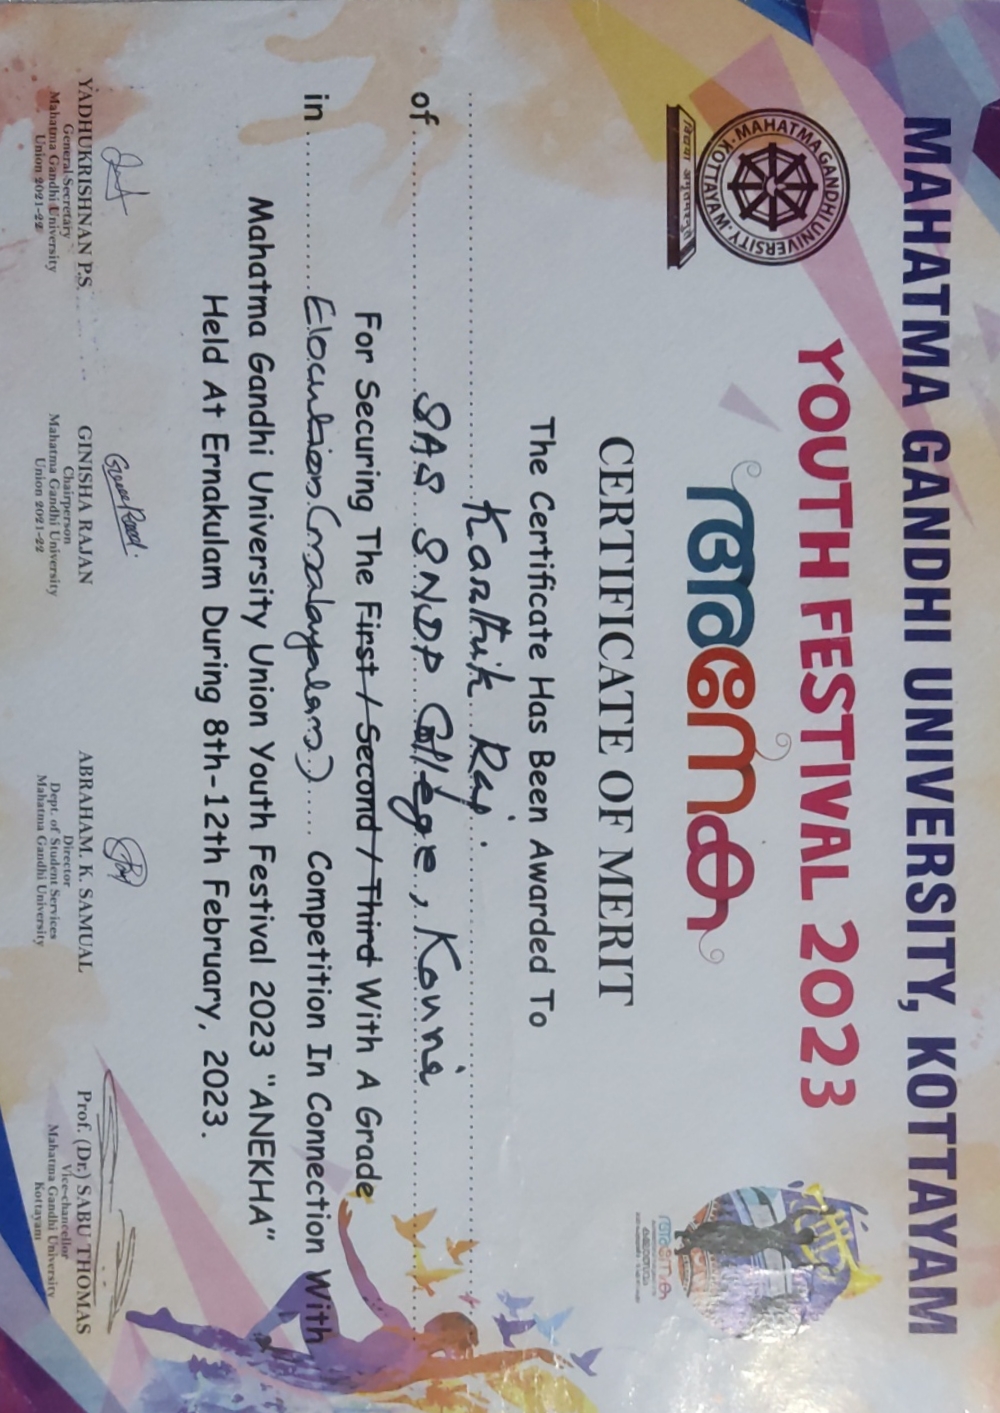 MAHATMA GANDHI UNIVERSITY, KOTTAYAM
YOUTH FESTIVAL 2023
MAHATMA GANDHI UNIVERSITY
· KOTTAYAM ·
विद्यया अमृतमश्नुते
അനേക
അനേക
കലോത്സവം
CERTIFICATE OF MERIT
The Certificate Has Been Awarded To
Karthik Raj.
of SAS SNDP College, Konni
For Securing The First / Second / Third With A Grade
in Elocution (malayalam) Competition In Connection With
Mahatma Gandhi University Union Youth Festival 2023 “ANEKHA”
Held At Ernakulam During 8th-12th February, 2023.
YADHUKRISHNAN P.S.
General Secretary
Mahatma Gandhi University
Union 2021-22
GINISHA RAJAN
Chairperson
Mahatma Gandhi University
Union 2021-22
ABRAHAM. K. SAMUAL
Director
Dept. of Student Services
Mahatma Gandhi University
Prof. (Dr.) SABU THOMAS
Vice-chancellor
Mahatma Gandhi University
Kottayam